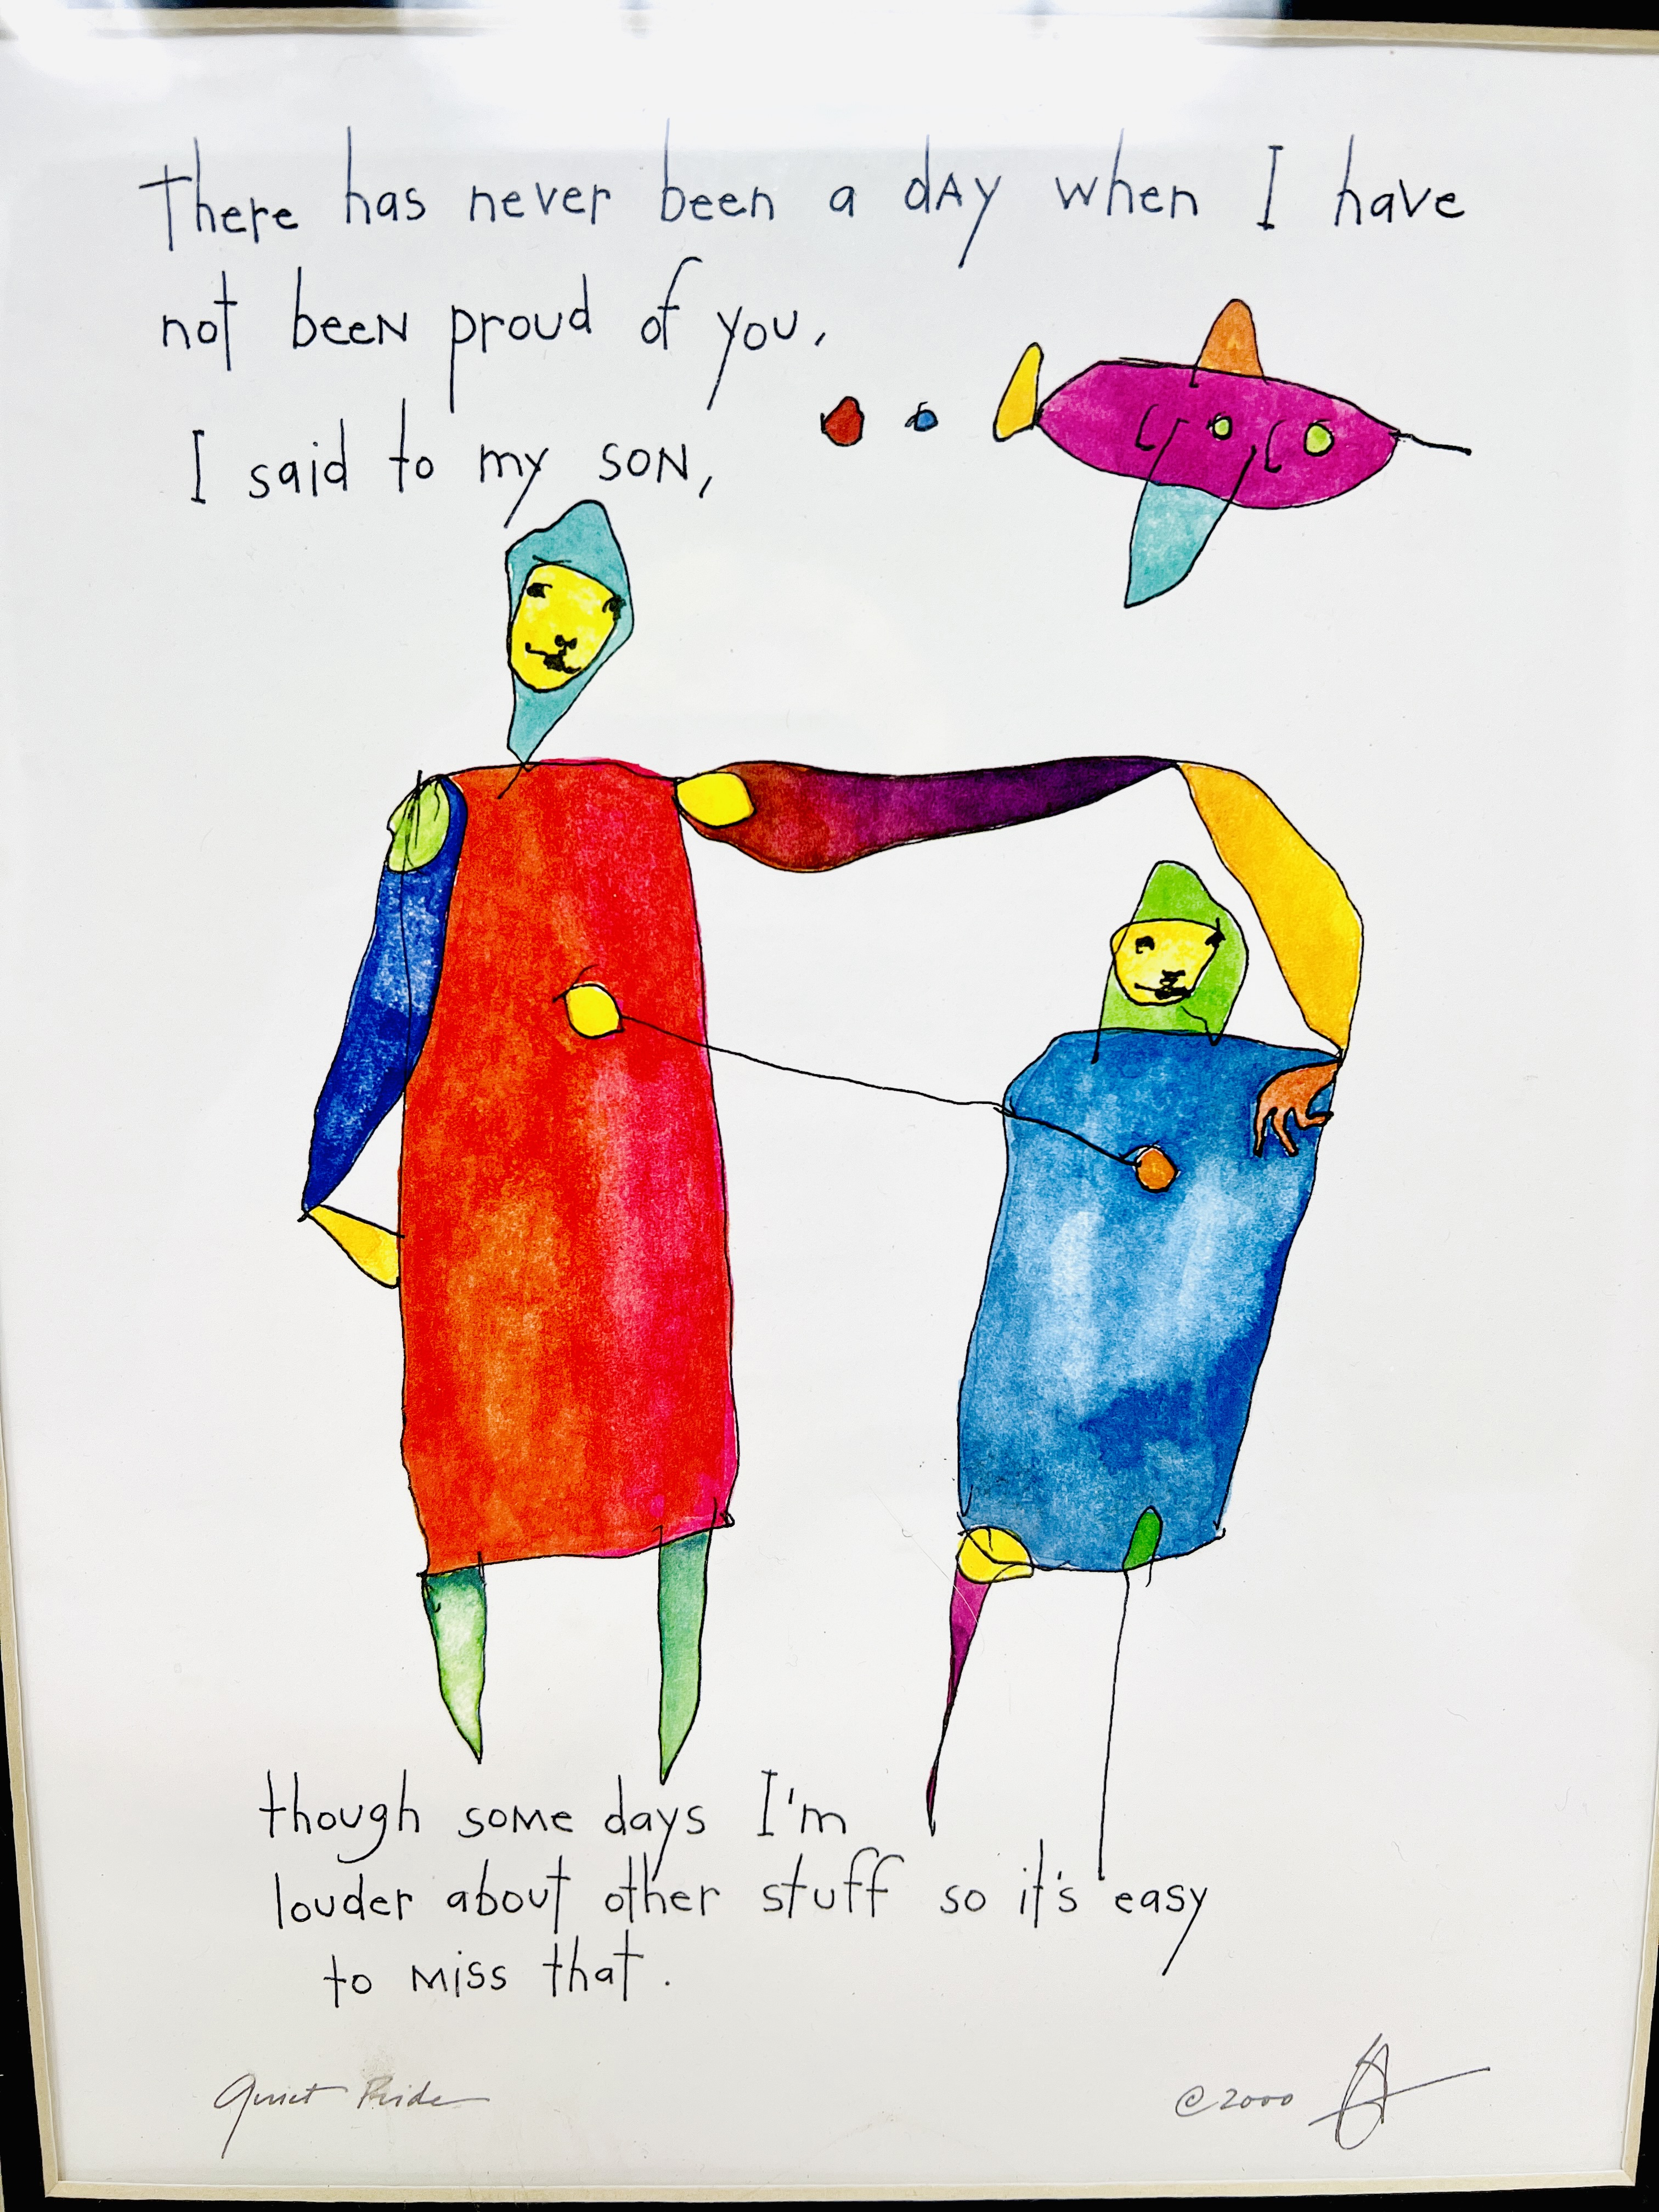 There has never been a day when I have
not been proud of you,
I said to my son,
though some days I'm
louder about other stuff so it's easy
to miss that.
Quiet Pride
©2000